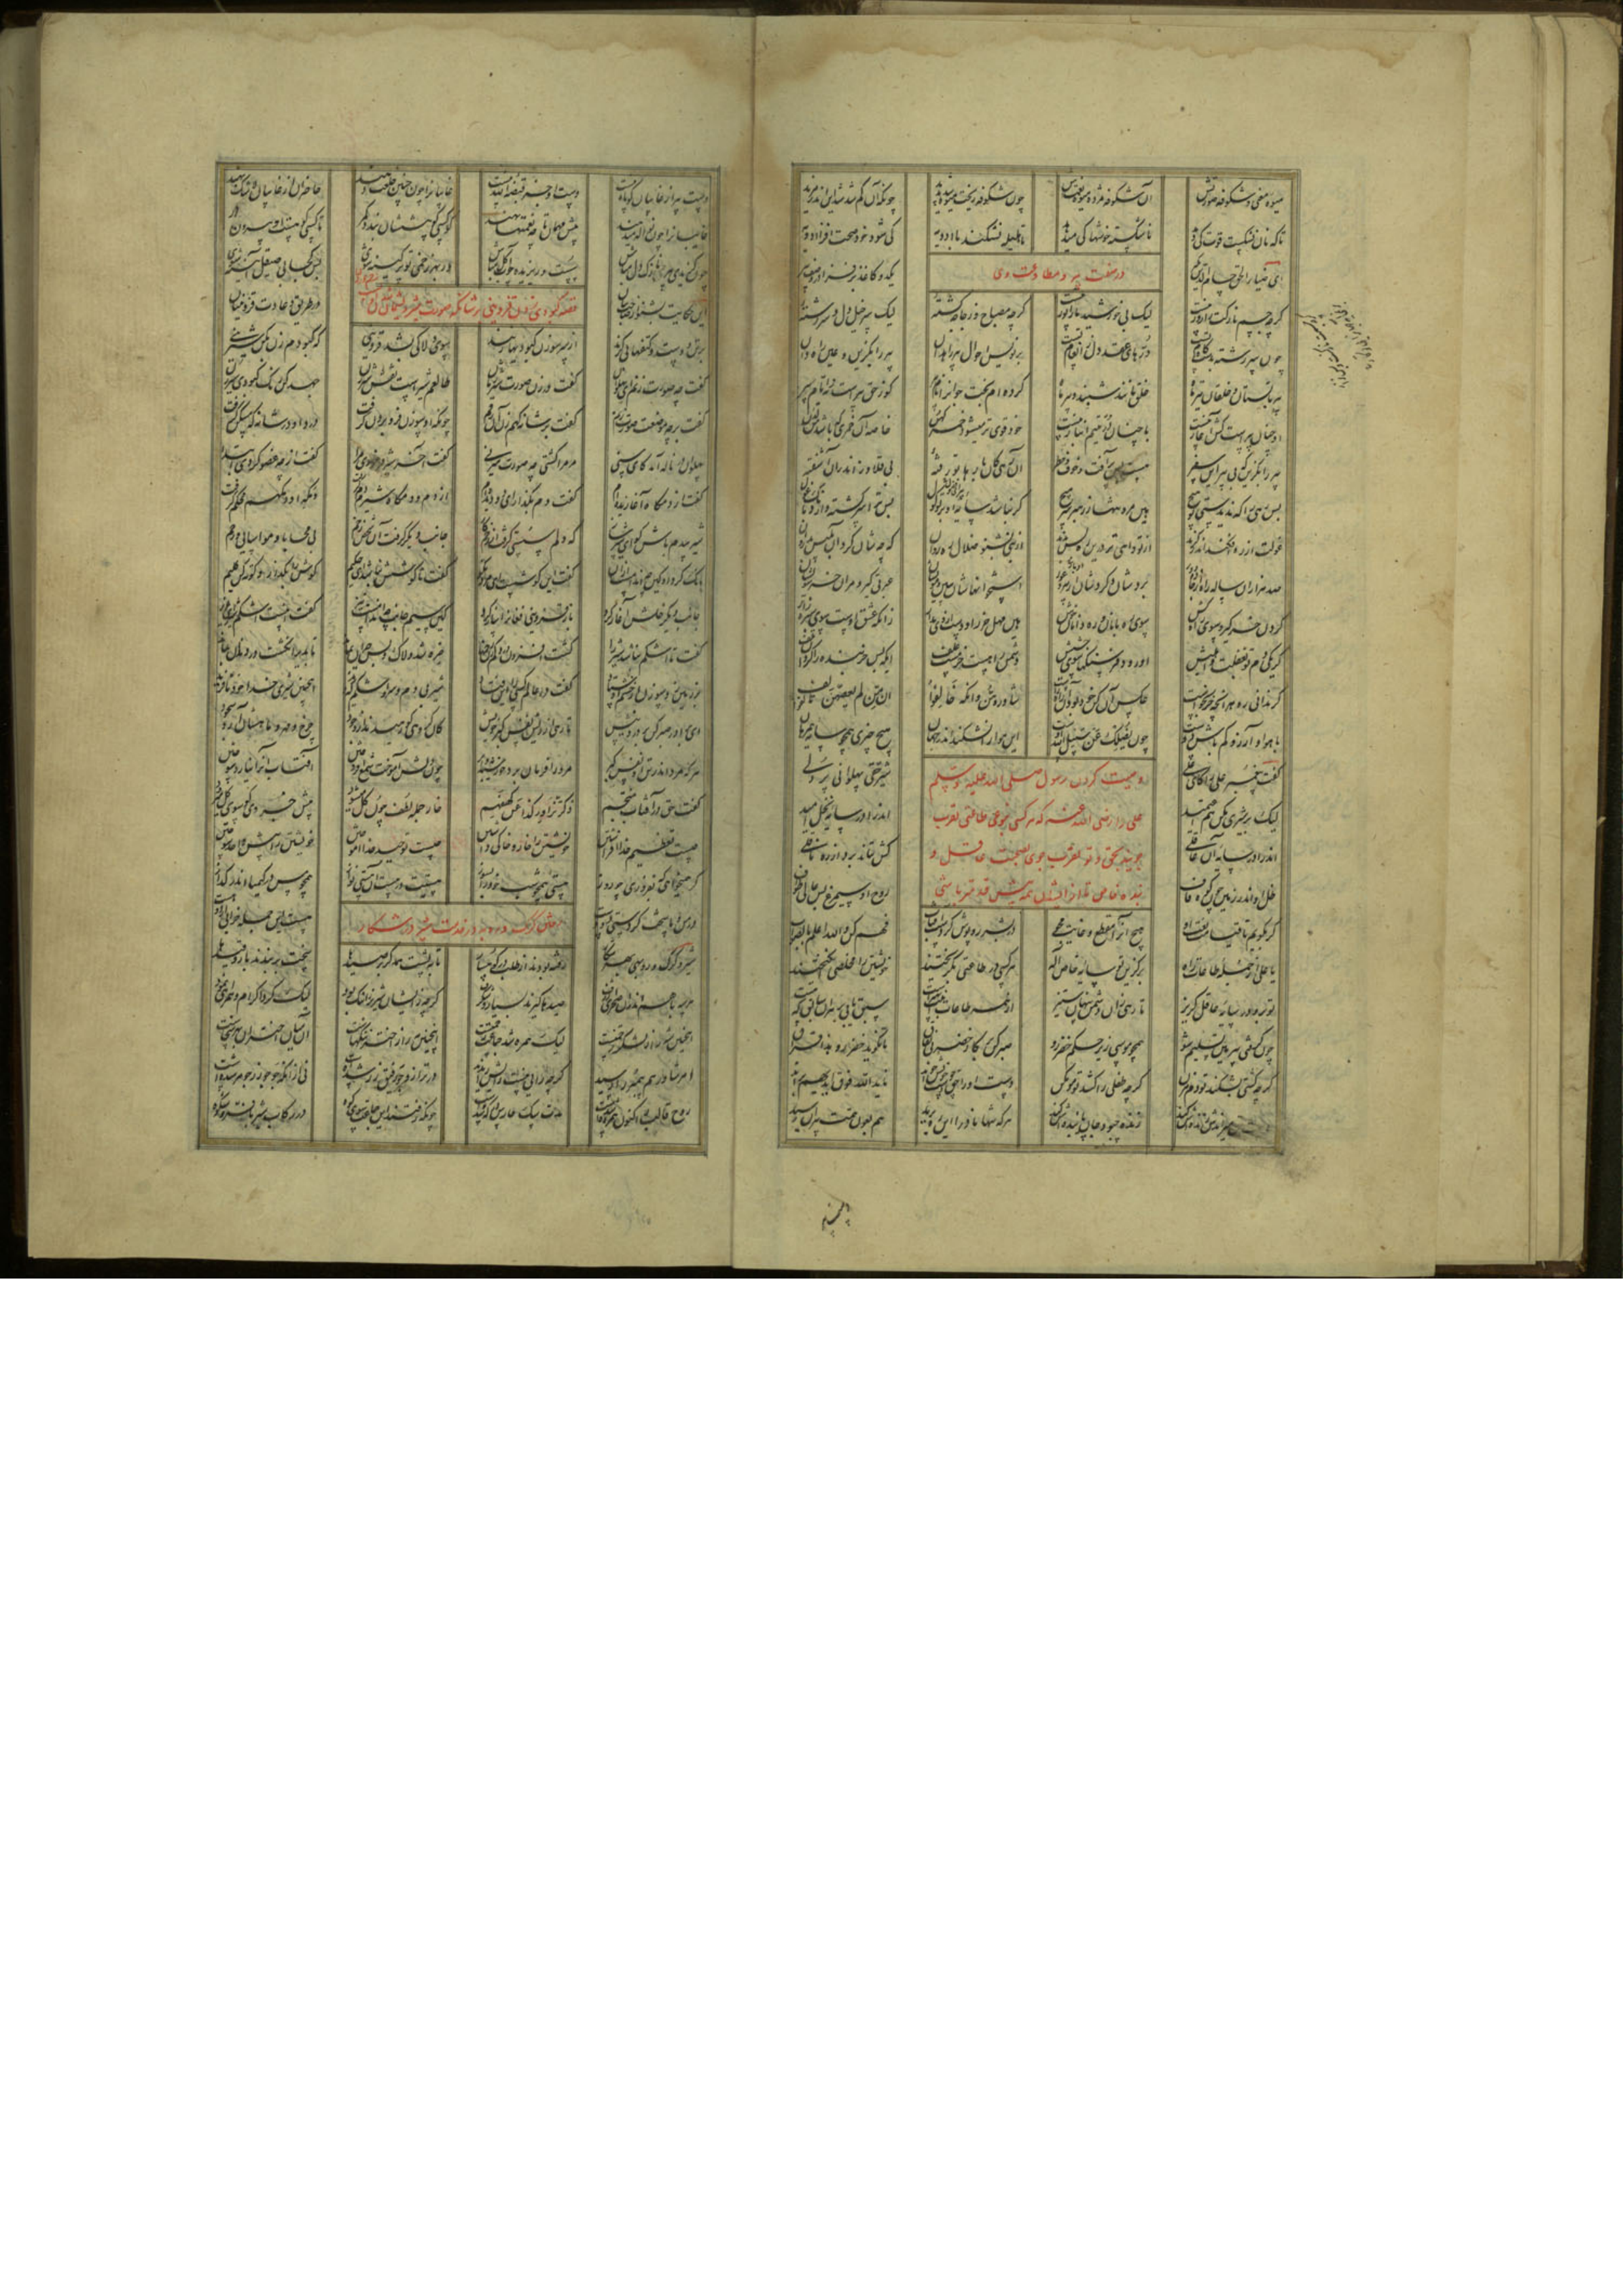 میوه معنی و شکوفه صورتش آن شکوفه مژده میوه نعمتش چون شکوفه ریخت میوه شد پدید چونکه آن کم شد شد این اندر مزید
تا که نان نشکست قوت کی دهد ناشکسته خوشها کی می دهد تا هلیله نشکند با ادویه کی شود خود صحت افزا ادویه
در صفت پیر و مطاوعت وی
ای ضیاء الحق حسام الدین بگیر یک دو کاغذ بر فزا در وصف پیر
گرچه جسم نازکت را زور نیست لیک بی خورشید ما را نور نیست گرچه مصباح و زجاجه گشته لیک سرخیل دل و سررشته
چون سر رشته بدست و کام تست درهای عقد دل ز انعام تست بر نویس احوال پیر راه دان پیر را بگزین و عین راه دان
پیر تابستان و خلقان تیر ماه خلق مانند شبند و پیر ماه کرده ام بخت جوان را نام پیر کو ز حق پیرست نه ز ایام پیر
او چنان پیرست کش آغاز نیست با چنان در یتیم انباز نیست خود قوی تر میشود خمر کهن خاصه آن خمری که باشد من لدن
پیر را بگزین که بی پیر این سفر هست بس پر آفت و خوف و خطر آن رهی که بارها تو رفته بی قلاوز اندر آن آشفته
پس رهی را که ندیدستی تو هیچ هین مرو تنها ز رهبر سر مپیچ گر نباشد سایه او بر تو گول پس ترا سرگشته دارد بانگ غول
غولت از ره افکند اندر گزند از تو داهی تر درین ره بس بدند از نبی بشنو ضلال ره روان که چه شان کرد آن بلیس بد روان
صد هزاران ساله راه از جاده دور بردشان و کردشان ادبار و عور استخوانهاشان ببین و مویشان عبرتی گیر و مران خر سویشان
گردن خر گیر و سوی راه کش سوی ره بانان و ره دانان خوش هین مهل خر را و دست از وی مدار زانکه عشق اوست سوی سبزه زار
گر یکی دم تو بغفلت وا هلیش او رود فرسنگها سوی حشیش دشمن راهست خر مست علف ای که بس خر بنده را کرد او تلف
گر ندانی ره هر آنچه خر بخواست عکس آن کن خود بود آن راه راست شاوروهن و انگه خالفوا ان من لم یعصهن تالف
با هوا و آرزو کم باش دوست چون یضلک عن سبیل الله اوست این هوا را نشکند اندر جهان هیچ چیزی همچو سایه همرهان
وصیت کردن رسول صلی الله علیه و سلم
علی را رضی الله عنه که هر کسی بنوعی طاعتی تقرب
جوید بحق و تو تقرب جوی بصحبت عاقل و
بنده خاص تا از ایشان همه پیش قدم تر باشی
گفت پیغمبر علی را کای علی شیر حقی پهلوانی پر دلی
لیک بر شیری مکن هم اعتمید اندر آ در سایه نخل امید
اندر آ در سایه آن عاقلی کش نتاند برد از ره ناقلی
ظل او اندر زمین چون کوه قاف روح او سیمرغ بس عالی طواف
گر بگویم تا قیامت نعت او هیچ آنرا مقطع و غایت مجو در بشر روپوش کردست آفتاب فهم کن والله اعلم بالصواب
یا علی از جمله طاعات راه برگزین تو سایه خاص اله هر کسی در طاعتی بگریختند خویشتن را مخلصی انگیختند
تو برو در سایه عاقل گریز تا رهی زان دشمن پنهان ستیز از همه طاعات اینت بهترست سبق یابی بر هر آن سابق که هست
چون گرفتی پیر هین تسلیم شو همچو موسی زیر حکم خضر رو صبر کن بر کار خضر بی نفاق تا نگوید خضر رو هذا فراق
گرچه کشتی بشکند تو دم مزن گرچه طفلی را کشد تو مو مکن دست او را حق چو دست خویش خواند تا ید الله فوق ایدیهم براند
دست حق میراندش زنده ش کند زنده چبود جان پاینده ش کند هر که تنها نادرا این ره برید هم بعون همت پیران رسید
دست پیر از غایبان کوتاه نیست دست او جز قبضه الله نیست غایبان را چون چنین خلعت دهند حاضران از غایبان لا شک بهند
غایبان را چون نواله میدهند پیش مهمان تا چه نعمتها نهند کو کسی کو پیش شه بندد کمر تا کسی کو هست از بیرون در
چون گزیدی پیر نازک دل مباش سست و ریزیده چو آب و گل مباش ور بهر زخمی تو پر کینه شوی پس کجا بی صیقل آیینه شوی
قصه کبودی زدن قزوینی بر شانگه صورت شیر و پشیمان شدن او
این حکایت بشنو از صاحب بیان در طریق و عادت قزوینیان
بر تن و دست و کتفها بی گزند از سر سوزن کبودیها زنند سوی دلاکی بشد قزوینی که کبودم زن بکن شیرینی
گفت چه صورت زنم ای پهلوان گفت بر زن صورت شیر ژیان طالعم شیرست نقش شیر زن جهد کن رنگ کبودی سیر زن
گفت بر چه موضعت صورت زنم گفت بر شانه گهم زن آن رقم چونکه او سوزن فرو بردن گرفت درد او در شانگه مسکن گرفت
پهلوان در ناله آمد کای سنی مر مرا کشتی چه صورت میزنی گفت آخر شیر فرمودی مرا گفت از چه عضو کردی ابتدا
گفت از دمگاه آغازیده ام گفت دم بگذار ای دو دیده ام از دم و دمگاه شیرم دم گرفت دمگه او دمگهم محکم گرفت
شیر بی دم باش گو ای شیر ساز که دلم سستی گرفت از زخم گاز جانب دیگر گرفت آن شخص زخم بی محابا و مواسایی و رحم
بانگ کرد او کین چه اندامست ازو گفت این گوشست ای مرد نکو گفت تا گوشش نباشد ای حکیم گوش را بگذار و کوته کن گلیم
جانب دیگر خلش آغاز کرد باز قزوینی فغان را ساز کرد کین سیم جانب چه اندامست نیز گفت اینست اشکم شیر ای عزیز
گفت تا اشکم نباشد شیر را گشت افزون درد کم زن زخمها خیره شد دلاک و بس حیران بماند تا بدیر انگشت در دندان بماند
بر زمین زد سوزن از خشم اوستاد گفت در عالم کسی را این فتاد شیر بی دم و سر و اشکم که دید اینچنین شیری خدا خود نافرید
ای برادر صبر کن بر درد نیش تا رهی از نیش نفس گبر خویش کان گروهی که رهیدند از وجود چرخ و مهر و ماهشان آرد سجود
هر که مرد اندر تن او نفس گبر مر ورا فرمان برد خورشید و ابر چون دلش آموخت شمع افروختن آفتاب او را نیارد سوختن
گفت حق در آفتاب منتجم ذکر تزاور کذا عن کهفهم خار جمله لطف چون گل میشود پیش جزوی کو سوی کل میرود
چیست تعظیم خدا افراشتن خویشتن را خار و خاکی داشتن چیست توحید خدا آموختن خویشتن را پیش واحد سوختن
گر همی خواهی که بفروزی چو روز هستی همچون شب خود را بسوز هستیت در هست آن هستی نواز همچو مس در کیمیا اندر گداز
در من و ما سخت کردستی دو دست هست این جمله خرابی از دو هست
رفتن گرگ و روباه در خدمت شیر در شکار
شیر و گرگ و روبهی بهر شکار رفته بودند از طلب در کوهسار تا به پشت همدگر بر صیدها سخت بر بندند بار قیدها
هر سه با هم اندر آن صحرای ژرف صیدها گیرند بسیار و شگرف گرچه زیشان شیر نر را ننگ بود لیک کرد اکرام و همراهی نمود
اینچنین شه را ز لشکر زحمتست لیک همره شد جماعت رحمتست اینچنین مه را ز اختر ننگهاست آن میان اختران بهر سخاست
امر شاورهم پیمبر را رسید گرچه رایی نیست رایش را ندید در ترازو جو رفیق زر شدست نی از آنکه جو چو زر جوهر شدست
روح قالب را کنون همره شدست مدتی سگ حارس درگه شدست چونکه رفتند این جماعت سوی کوه در رکاب شیر با فر و شکوه